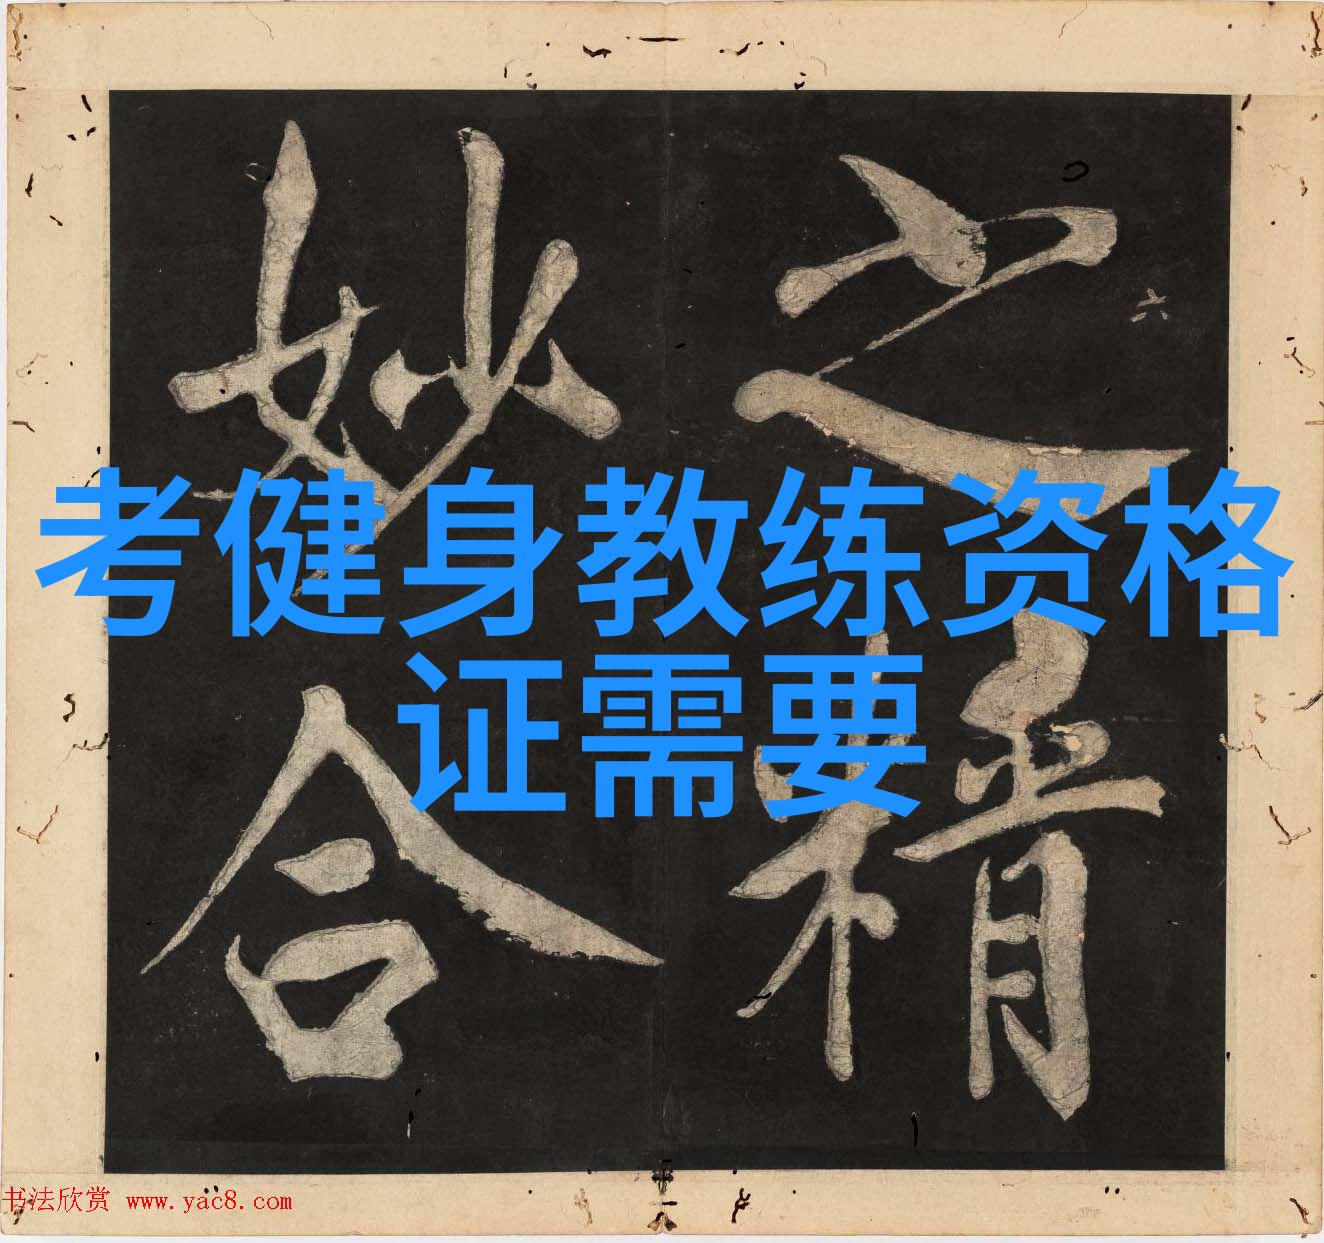 考健身教练资格
证需要
之精
妙合
六
书法欣赏 www.yac8.com